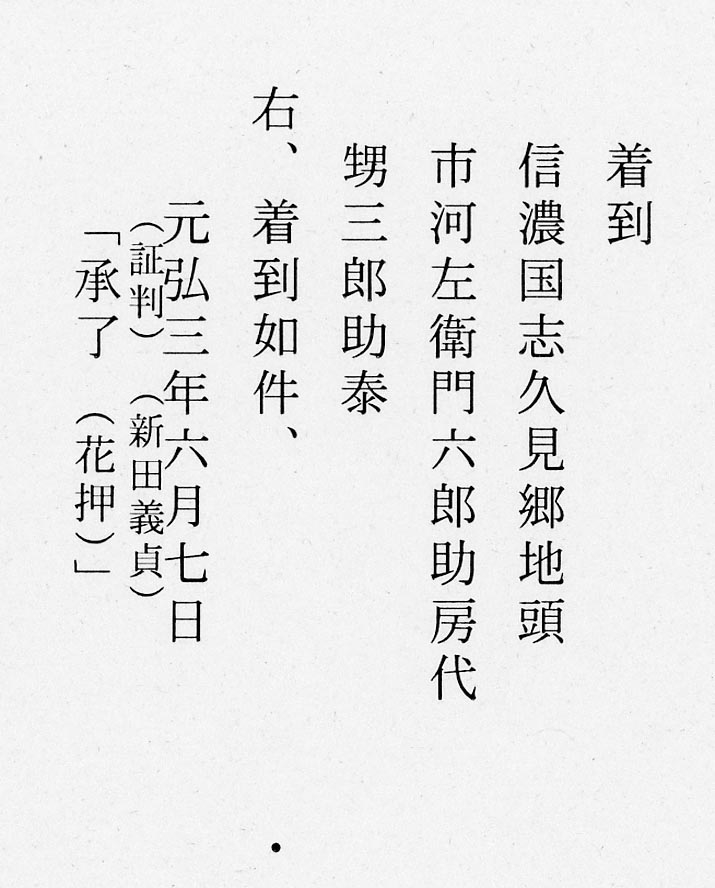 着到
信濃国志久見郷地頭
市河左衛門六郎助房代
甥三郎助泰
右、着到如件、
元弘三年六月七日
（証判）（新田義貞）
「承了（花押）」